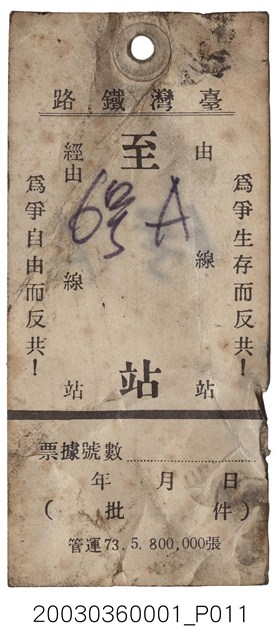 臺灣鐵路
由 線 站
為爭生存而反共！
至 站
6号A
經由 線 站
為爭自由而反共！
票據號數
年 月 日
（ 批 件 ）
管運73. 5. 800,000張
20030360001_P011